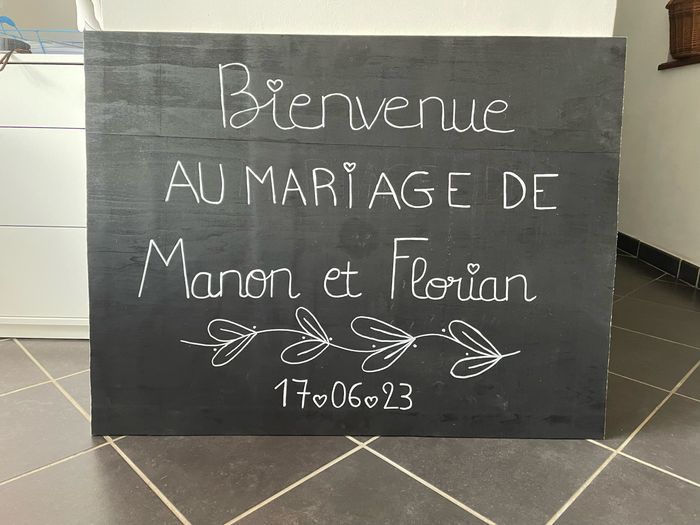 Bienvenue
AU MARIAGE DE
Manon et Florian
17♥06♥23